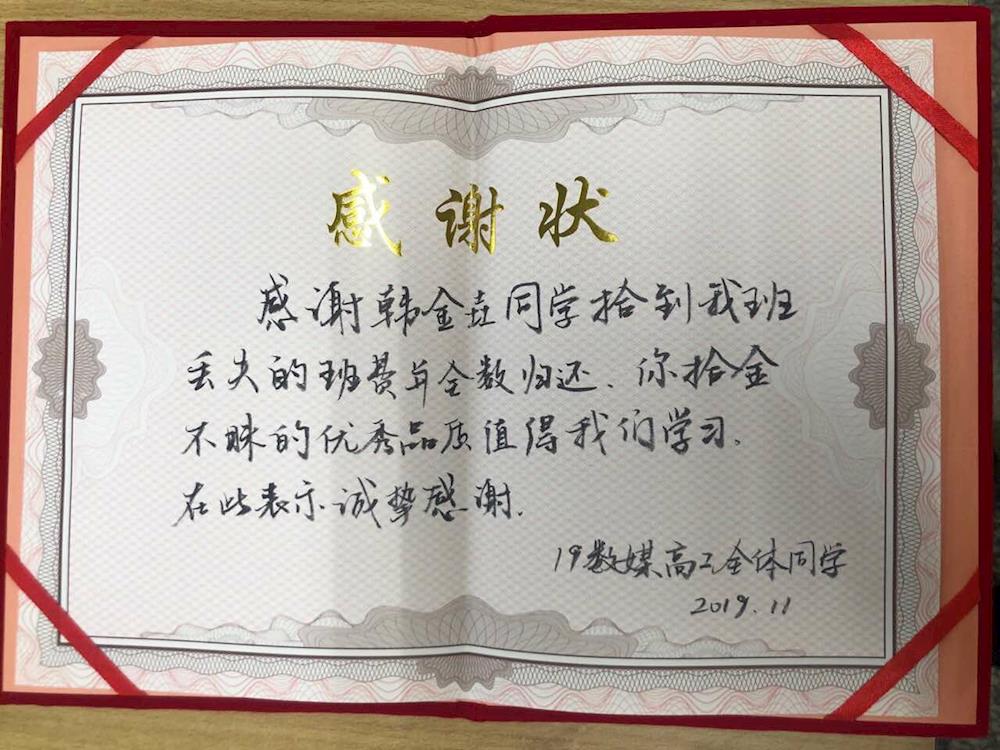 感谢状
感谢韩金垚同学拾到我班
丢失的班费并全数归还、你拾金
不昧的优秀品质值得我们学习、
在此表示诚挚感谢.
19数媒高工全体同学
2019.11